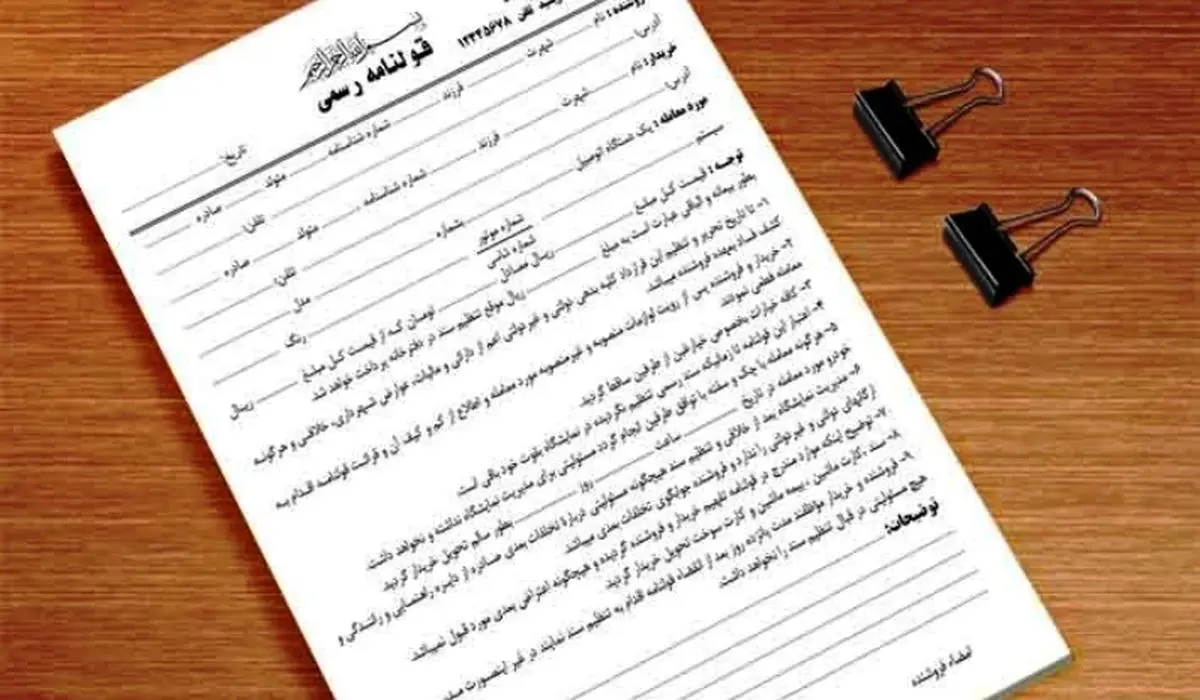 بسم الله الرحمن الرحیم
قولنامه رسمی
تلفن ۱۲۳۴۵۶۷۸
تاریخ:
فروشنده: نام شهرت فرزند شماره شناسنامه متولد صادره
آدرس: تلفن:
خریدار: نام شهرت فرزند شماره شناسنامه متولد صادره
آدرس: تلفن:
مورد معامله: یک دستگاه اتومبیل بشماره مدل رنگ
سیستم شماره موتور شماره شاسی
توجه: قیمت کل مبلغ ریال معادل تومان که از قیمت کل مبلغ ریال
بطور بیعانه و الباقی عبارت است به مبلغ ریال موقع تنظیم سند در دفترخانه پرداخت خواهد شد.
۱- تا تاریخ تحریر و تنظیم این قرارداد کلیه بدهی دولتی و غیردولتی اعم از دارائی و مالیات، عوارض شهرداری، خلافی و هرگونه
کشف فساد بعهده فروشنده میباشد.
۲- خریدار و فروشنده پس از رویت لوازمات منصوبه و غیرمنصوبه مورد معامله و اطلاع از کم و کیف آن و قرائت قولنامه اقدام به
معامله قطعی نمودند.
۳- کافه خیارات بخصوص خیار غبن از طرفین ساقط گردید.
۴- اعتبار این قولنامه تا زمانیکه سند رسمی تنظیم نگردیده در نمایشگاه بقوت خود باقی است.
۵- هرگونه معامله با چک و سفته با توافق طرفین انجام گردد مسئولیتی برای مدیریت نمایشگاه نداشته و نخواهد داشت.
خودرو مورد معامله در تاریخ ساعت روز بطور سالم تحویل خریدار گردید.
۶- مدیریت نمایشگاه بعد از خلافی و تنظیم سند هیچگونه مسئولیتی درباره تخلفات بعدی صادره از دایره راهنمایی و رانندگی و
ارگانهای دولتی و غیردولتی را ندارد و فروشنده جوابگوی تخلفات بعدی میباشد.
۷- توضیح اینکه موارد مندرج در قولنامه تفهیم خریدار و فروشنده گردیده و هیچگونه اعتراض بعدی مورد قبول نمیباشد.
۸- سند، کارت ماشین، بیمه ماشین و کارت سوخت تحویل خریدار گردید.
۹- فروشنده و خریدار موظفند مدت پانزده روز بعد از انقضاء قولنامه اقدام به تنظیم سند نمایند در غیر اینصورت
هیچ مسئولیتی در قبال تنظیم سند را نخواهد داشت.
توضیحات:
امضاء فروشنده